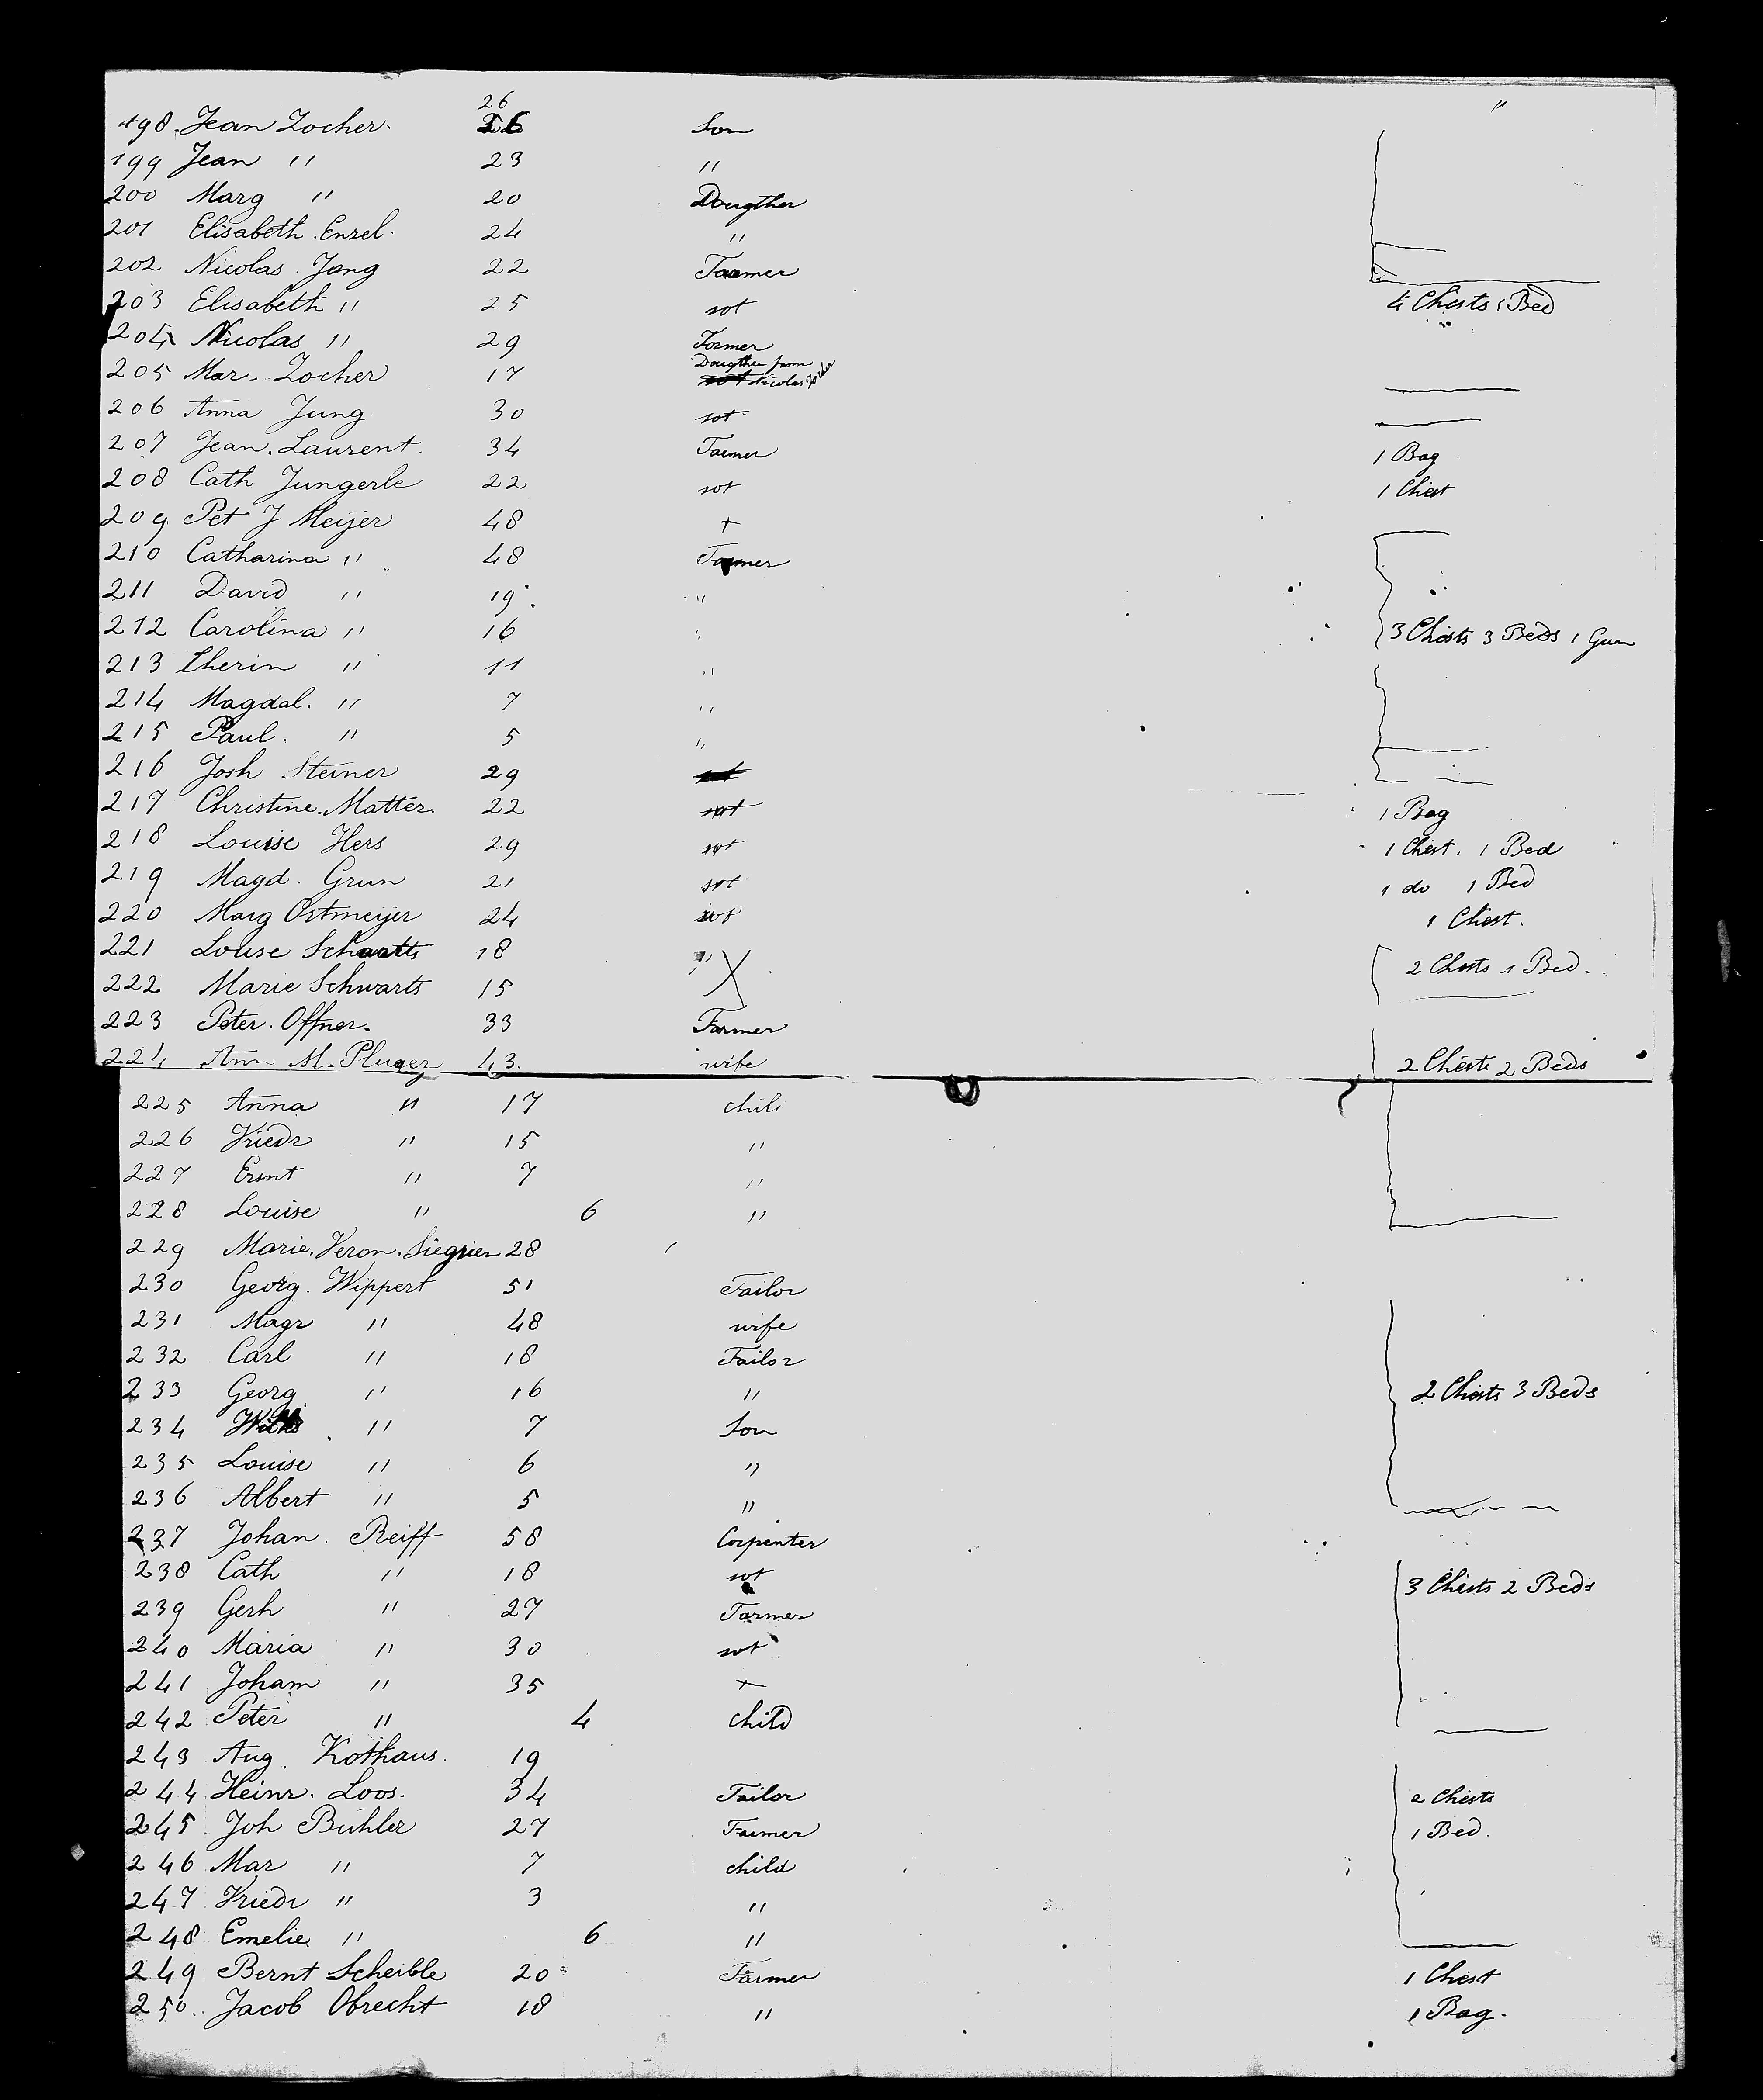 198. Jean Zocher. 26 Son "
199 Jean " 23 "
200 Marg " 20 Dougther
201 Elisabeth Enzel. 24 "
202 Nicolas Jong 22 Farmer
203 Elisabeth " 25 not 4 Chests 1 Bed
204 Nicolas " 29 Former
205 Mar. Zocher 17 Dougther from Nicolas Zocher
206 Anna Jung 30 not
207 Jean. Laurent. 34 Farmer 1 Bag
208 Cath Jungerle 22 not 1 Chest
209 Pet J Meijer 48 +
210 Catharina " 48 Farmer
211 David " 19 "
212 Carolina " 16 " 3 Chests 3 Beds 1 Gun
213 Cherin " 11 "
214 Magdal. " 7 "
215 Paul. " 5 "
216 Josh Steiner 29
217 Christine. Matter. 22 not 1 Bag
218 Louise Hers 29 not 1 Chest. 1 Bed
219 Magd. Grun 21 not 1 do 1 Bed
220 Marg Ostmeyer 24 not 1 Chest.
221 Louse 18 " 2 Chests 1 Bed.
222 Marie Schwarts 15
223 Peter. Offner. 33 Farmer
224 Ann M. Pluger 43. wife 2 Chests 2 Beds
225 Anna " 17 chil
226 Friedr " 15 "
227 Ernt " 7 "
228 Louise " 6 "
229 Marie. Veron. Siegrien 28
230 Georg. Wippert 51 Tailor
231 Magr " 48 wife
232 Carl " 18 Tailor
233 Georg " 16 " 2 Chests 3 Beds
234 " 7 Son
235 Louise " 6 "
236 Albert " 5 "
237 Johan. Reiff 58 Corpenter
238 Cath " 18 not 3 Chests 2 Beds
239 Gerh " 27 Farmer
240 Maria " 30 not
241 Joham " 35 +
242 Peter " 4 child
243 Aug. Kothaus. 19
244 Heinr. Loos. 34 Tailor 2 Chests
245 Joh Buhler 27 Farmer 1 Bed.
246 Mar " 7 child
247 Friedr " 3 "
248 Emelie " 6 "
249 Bernt Scheible 20 Farmer 1 Chest
250. Jacob Obrecht 18 " 1 Bag.